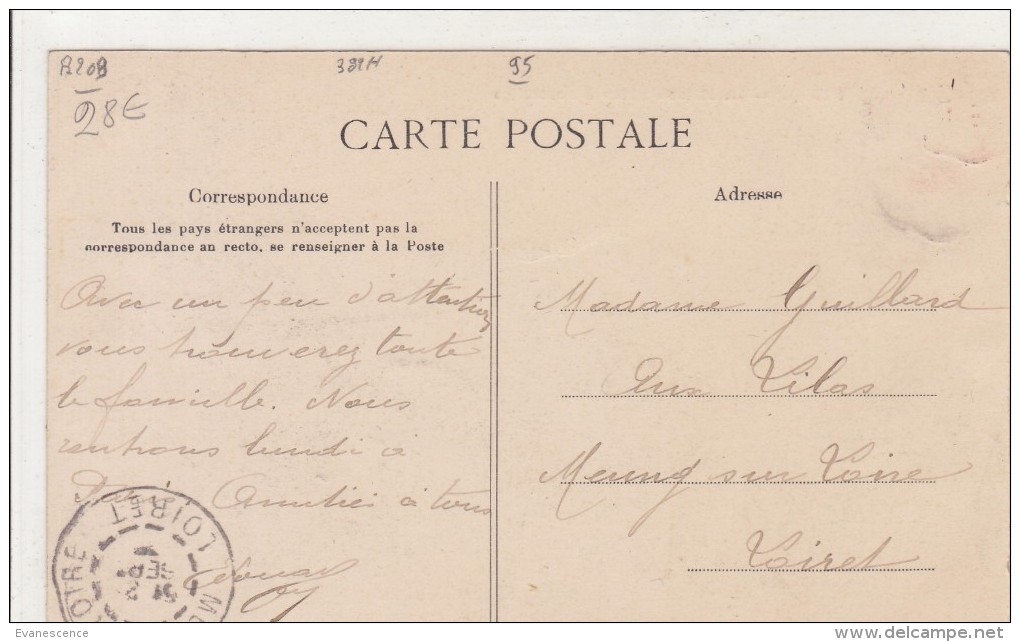 A209
28€
321H
95
CARTE POSTALE
Correspondance
Tous les pays étrangers n'acceptent pas la
correspondance au recto, se renseigner à la Poste
Avec un peu d'attention
vous trouverez toute
la famille. Nous
rentrons lundi à
Paris. Amitiés à tous
Adresse
Madame Guillard
Aux Lilas
Meung sur Loire
Loiret
LOIRET
LOIRE
Evanescence
delcampe.net